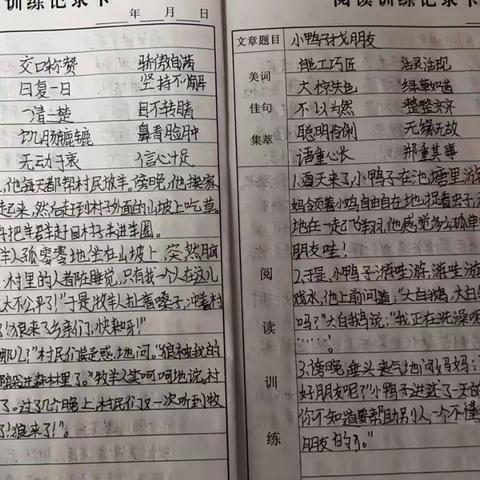 训练记录卡
年 月 日
交口称赞 骄傲自满
日复一日 坚持不懈
一清二楚 目不转睛
饥肠辘辘 鼻青脸肿
无动于衷 信心十足
他每天都帮村民放羊,傍晚,他挨家
起来,然后赶到村子外面的山坡上吃草,
再把羊群赶回村
羊人孤零零地坐在山坡上,突然脑
村里的人都在睡觉,只有我一个人在这儿
太不公平了!"于是,牧羊人扯着嗓子,冲着村
"狼来了!乡亲们,快来呀!"
哪儿?"村民们疑惑地问。"狼被我的
进森林里了。"牧羊人笑呵呵地说,村
了。过了几个晚上,村民们又一次听到牧
"狼来了!"。
阅读训练记录卡
文章题目 小鸭子找朋友
美词
佳句
集萃
能工巧匠 活灵活现
大惊失色 绿草如茵
不以为然 整整齐齐
聪明伶俐 无缘无故
语重心长 郑重其事
阅
读
训
练
1.夏天来了,小鸭子在池塘里游
妈领着小鸡自由自在地
地在一起飞 他感觉多么孤单
朋友哇!
2.于是,小鸭子游哇游,游哇游
戏水,他上前问道:"大白鹅,大白
吗?"大白鹅说:"我正在洗澡呢
……"
3.傍晚,垂头丧气地问妈妈:"
好朋友呢?"小鸭子 了一天的
你不知道要帮助别人,一个不懂
朋友的。"